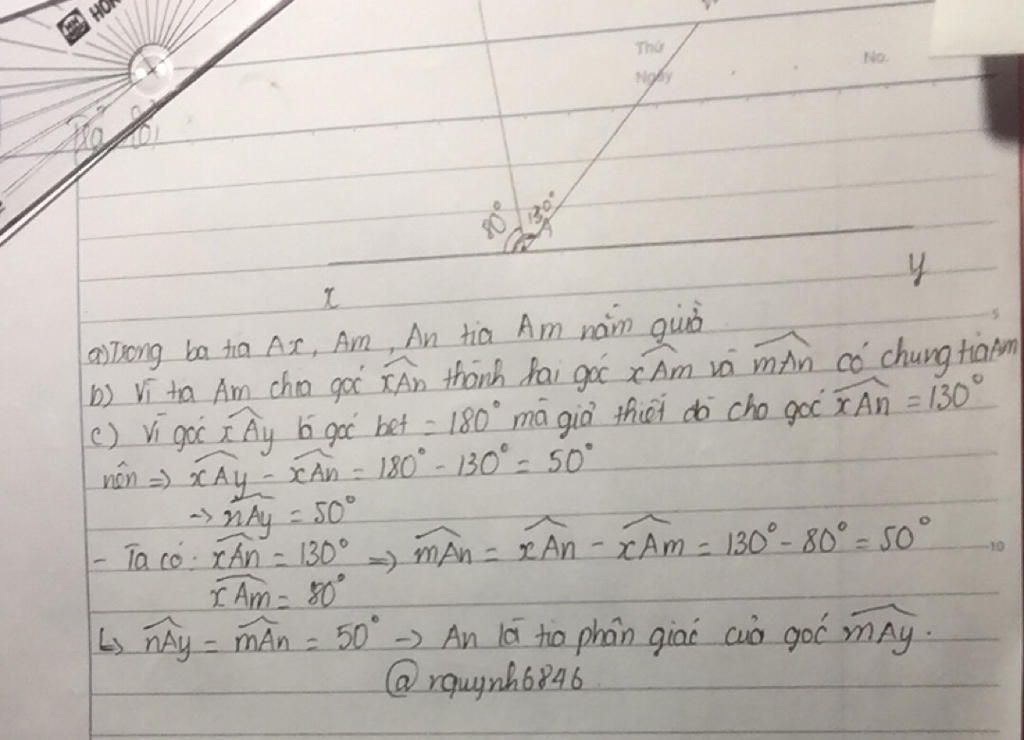 HOR
Thứ
Ngày
No.
Trả lời
80° 130°
A
x
y
a) Trong ba tia Ax, Am, An tia Am nằm giữa
5
b) Vì tia Am chia góc xAn thành hai góc xAm và mAn có chung tia Am
c) Vì góc xAy là góc bẹt = 180° mà giả thiết đã cho góc xAn = 130°
nên => xAy - xAn = 180° - 130° = 50°
-> nAy = 50°
- Ta có: xAn = 130° => mAn = xAn - xAm = 130° - 80° = 50°
10
xAm = 80°
↳ nAy = mAn = 50° -> An là tia phân giác của góc mAy.
@rquynh6846